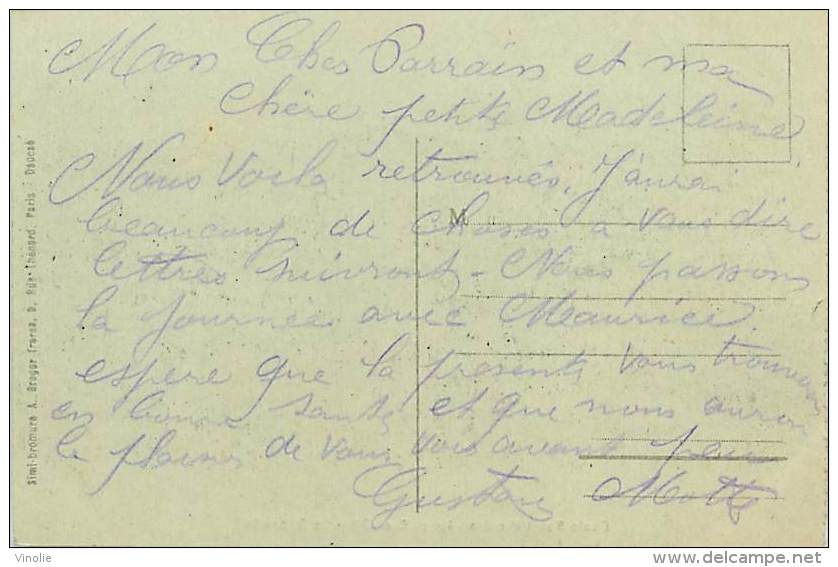 Mon Cher Parrain et ma
chère petite Madeleine
Nous Voila retrouvés, J'aurai
beaucoup de choses a vous dire
M
lettres suivront - Nous passons
la journée avec Maurice.
espere que la presente vous trouvera
en bonne santé et que nous aurons
le plaisir de vous voir avant peu
Gustave Motte
Simi-bromure A. Breger frères, 9, Rue Thénard, Paris
Vinolie
www.delcampe.net